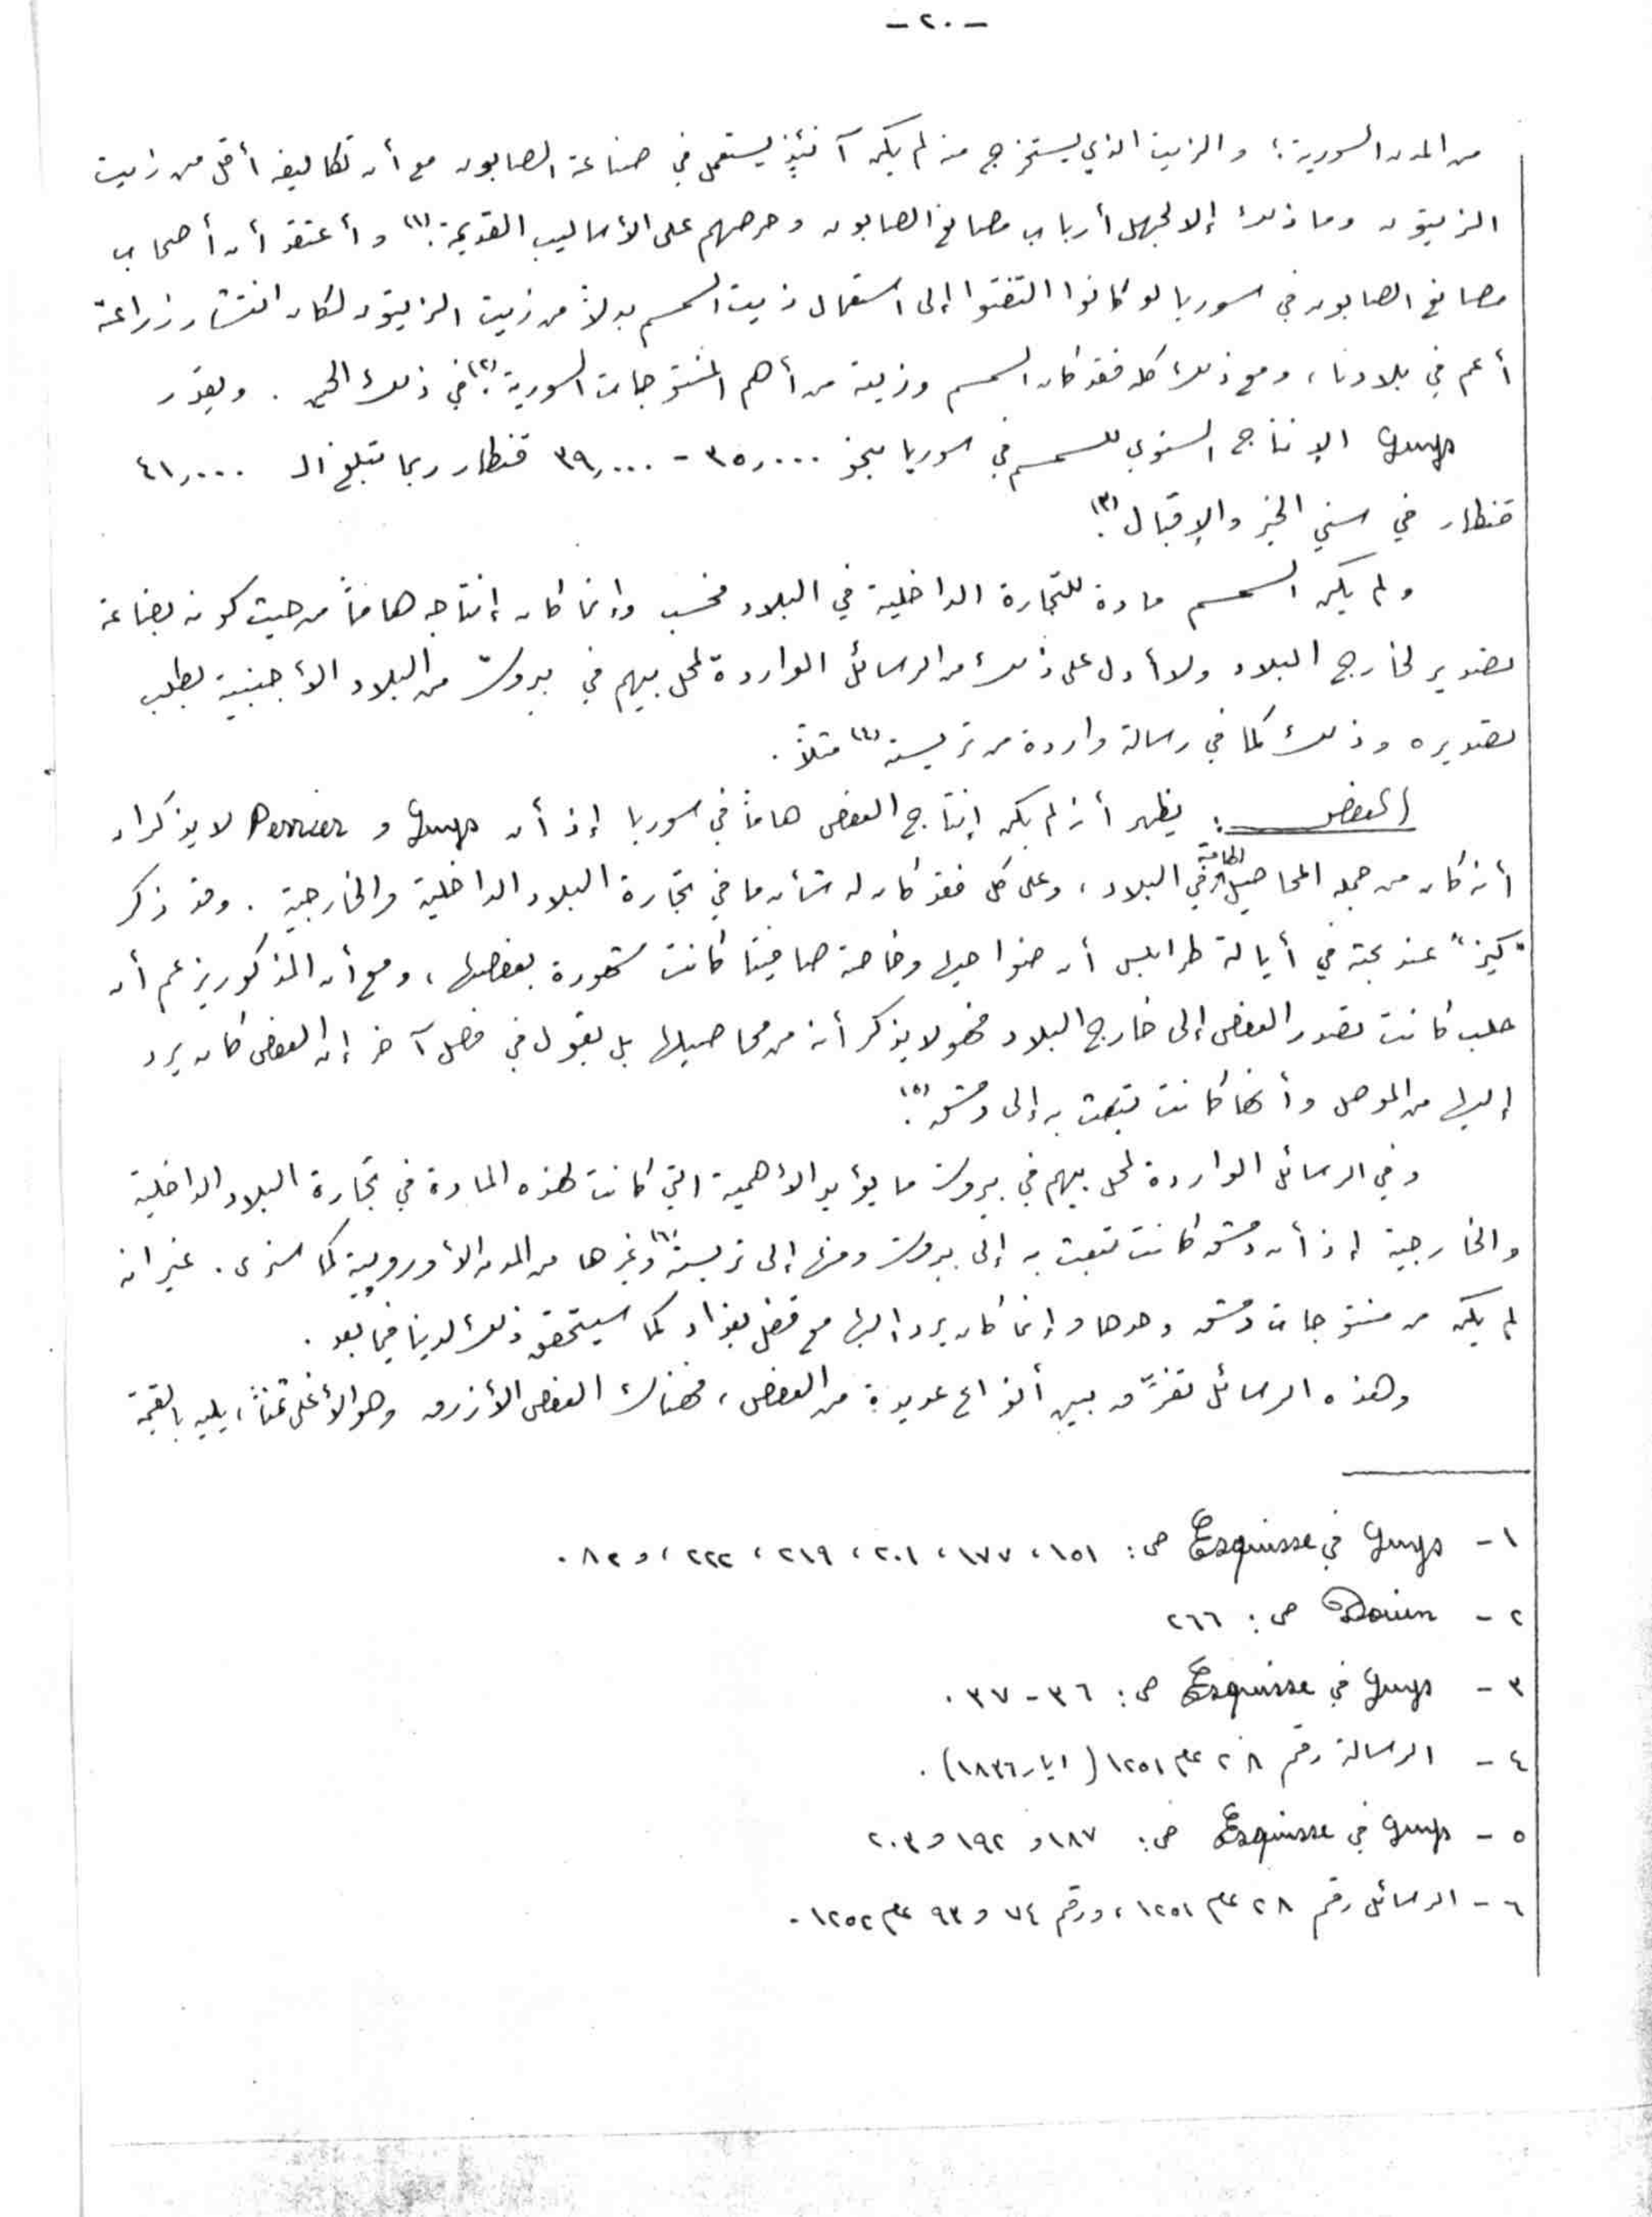 -٢٠-
من المدن السورية؛ والزيت الذي يستخرج منه لم يكن آنئذٍ يستعمل في صناعة الصابون مع أن تكاليفه أقل من زيت
الزيتون وما ذلك إلا لجهل أرباب مصانع الصابون وحرصهم على الأساليب القديمة.(١) وأعتقد أن أصحاب
مصانع الصابون في سوريا لو كانوا التفتوا إلى استعمال زيت السمسم بدلاً من زيت الزيتون لكان انتشار زراعته
أعم في بلادنا، ومع ذلك كله فقد كان السمسم وزيته من أهم المنتوجات السورية(٢) في ذلك الحين. ويقدّر
Guys الإنتاج السنوي للسمسم في سوريا بنحو ٣٥,٠٠٠ - ٣٩,٠٠٠ قنطار ربما تبلغ الـ ٤١,٠٠٠
قنطار في سني الخير والإقبال(٣).
ولم يكن السمسم مادة للتجارة الداخلية في البلاد فحسب وإنما كان إنتاجه هاماً من حيث كونه بضاعة
تصدير لخارج البلاد ولا أدل على ذلك من الرسائل الواردة لمحل بيهم في بيروت من البلاد الأجنبية بطلب
تصديره وذلك كما في رسالة واردة من تريسته(٤) مثلاً.
العفص: يظهر أنه لم يكن إنتاج العفص هاماً في سوريا إذ أن Guys و Perrier لا يذكران
أنه كان من جملة المحاصيل الهامة في البلاد، وعلى كل فقد كان له شأن ما في تجارة البلاد الداخلية والخارجية. وقد ذكر
"كيز" عند بحثه في أيالة طرابلس أن ضواحيها وخاصة صافيتا كانت مشهورة بعفصها، ومع أن المذكور يزعم أن
حلب كانت تصدر العفص إلى خارج البلاد فهو لا يذكر أنه من محاصيلها بل يقول في فصل آخر إن العفص كان يرد
إليها من الموصل وأنها كانت تبعث به إلى دمشق(٥).
وفي الرسائل الواردة لمحل بيهم في بيروت ما يؤيد الأهمية التي كانت لهذه المادة في تجارة البلاد الداخلية
والخارجية إذ أن دمشق كانت تبعث به إلى بيروت ومنها إلى تريستة(٦) وغيرها من المدن الأوروبية كما سنرى. غير انه
لم يكن من منتوجات دمشق وحدها وإنما كان يرد إليها مع قفل بغداد كما سيتحقق ذلك لدينا فيما بعد.
وهذه الرسائل تفرّق بين أنواع عديدة من العفص، فهناك العفص الأزرق وهو الأغلى ثمناً، يليه بالقيمة
١ - Guys في Esquisse ص: ١٥١، ١٧٧، ٢٠١، ٢١٩، ٢٢٢، و ٨٢.
٢ - Douin ص: ٢٦٦
٣ - Guys في Esquisse ص: ٣٦ - ٣٧.
٤ - الرسالة رقم ٢٨ عام ١٢٥١ (ايار ١٨٣٦).
٥ - Guys في Esquisse ص: ١٨٧ و ١٩٢ و ٢٠٣
٦ - الرسائل رقم ٢٨ عام ١٢٥١، ورقم ٧٤ و ٩٣ عام ١٢٥٢.